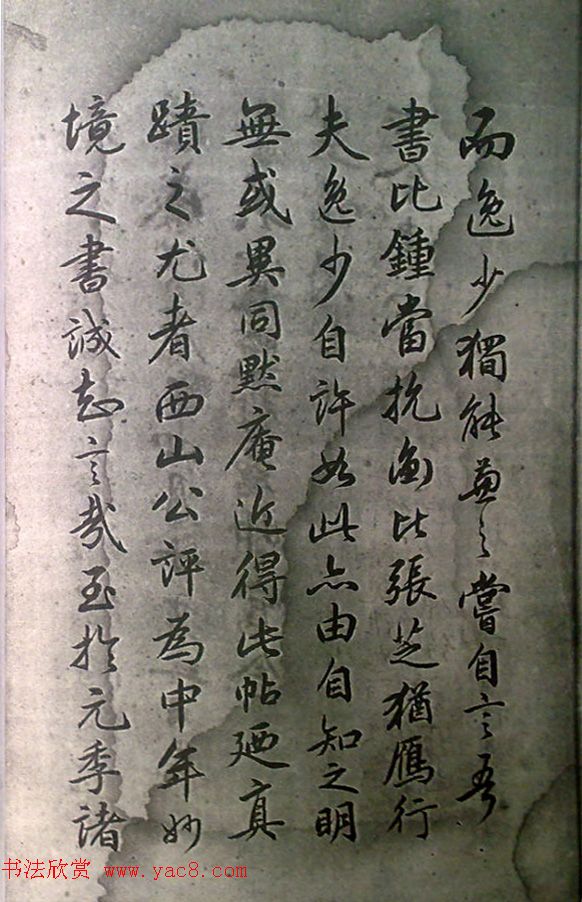 而逸少獨能兼之嘗自言吾
書比鍾當抗衡比張芝猶鴈行
夫逸少自許如此亦由自知之明
無或異同默庵近得此帖廼真
蹟之尤者西山公評為中年妙
境之書誠知言哉至於元季諸
书法欣赏 www.yac8.com